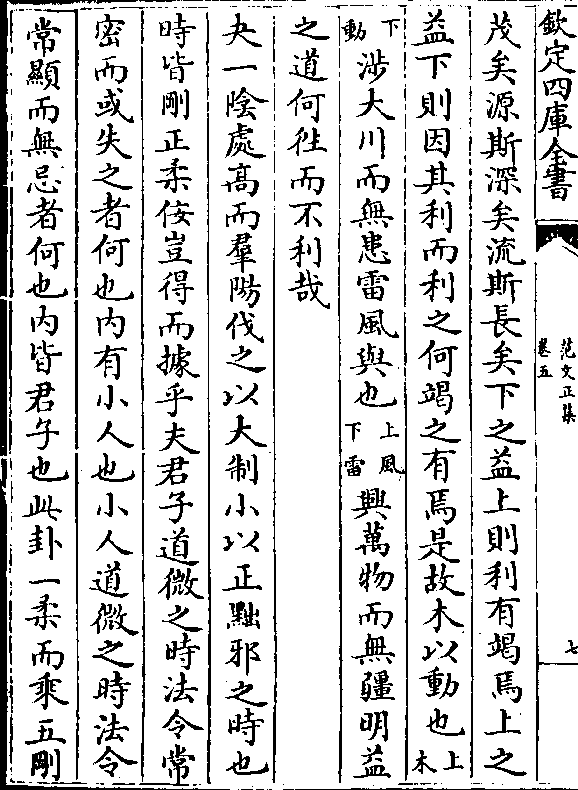 欽定四庫全書
范文正集
卷五
七
茂矣源斯深矣流斯長矣下之益上則利有竭焉上之
益下則因其利而利之何竭之有焉是故木以動也上木
下動涉大川而無患雷風與也上風下雷興萬物而無疆明益
之道何徃而不利哉
夬一陰處高而羣陽伐之以大制小以正黜邪之時也
時皆剛正柔佞豈得而據乎夫君子道微之時法令常
密而或失之者何也内有小人也小人道微之時法令
常顯而無忌者何也内皆君子也此卦一柔而乘五剛